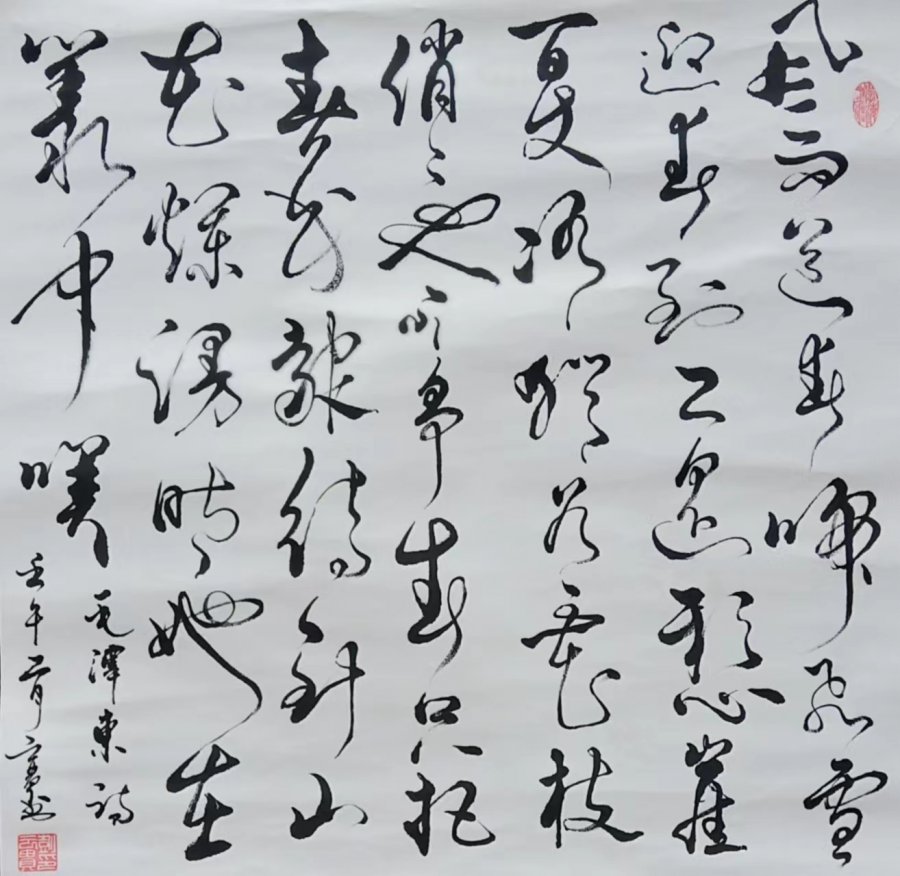 风雨送春归飞雪
迎春到已是懸崖
百丈冰猶有花枝
俏〻也不争春只把
春来報待到山
花爛漫時她在
叢中笑
毛澤東詞
壬午